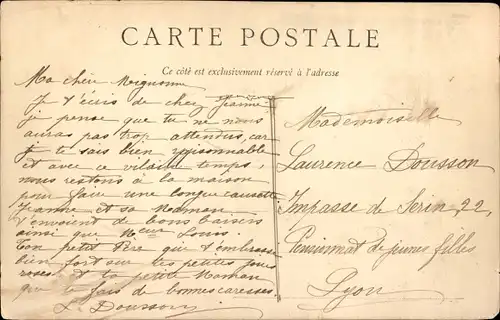 CARTE POSTALE
Ce côté est exclusivement réservé à l'adresse
Ma chère Mignonne
Je t'écris de chez Jeanne
je pense que tu ne nous
auras pas trop attendus, car
je te sais bien raisonnable
et avec ce vilain temps
nous restons à la maison
pour faire une longue causette
Jeanne et sa Maman
t'envoient de bons baisers
ainsi que Louis.
Ton petit Père qui t'embrasse
bien fort sur tes petites joues
roses et ta petite Maman
que te fais de bonnes caresses
L. Dousson
Mademoiselle
Laurence Dousson
Impasse de Serin 22
Pensionnat de jeunes filles
Lyon